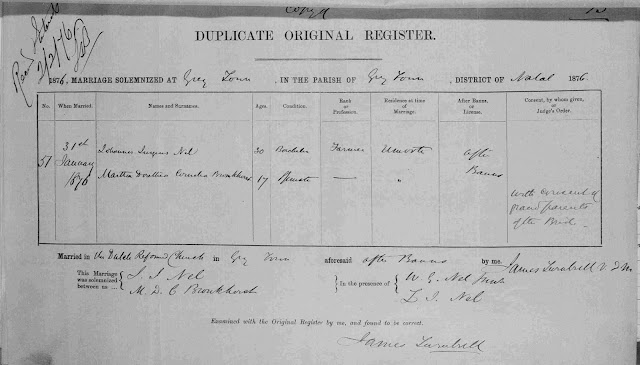 Copy
DUPLICATE ORIGINAL REGISTER.
1876. MARRIAGE SOLEMNIZED AT Grey Town, IN THE PARISH OF Grey Town, DISTRICT OF Natal 1876.
No. When Married. Names and Surnames. Ages. Condition. Rank or Profession. Residence at time of Marriage. After Banns, or License. Consent, by whom given, or Judge's Order.
57 31st January 1876 Johannes Jurgens Nel 20 Bachelor Farmer Umvoti after Banns
Martha Dorathea Cornelia Bronkhorst 17 Spinster " with consent of grand parents of the Bride
Married in the Dutch Reformed Church in Grey Town aforesaid after Banns by me, James Turnbull V.D.M.
This Marriage was solemnized between us ... J. J. Nel
M. D. C Bronkhorst
In the presence of W. E. Nel
L. J. Nel
Examined with the Original Register by me, and found to be correct.
James Turnbull